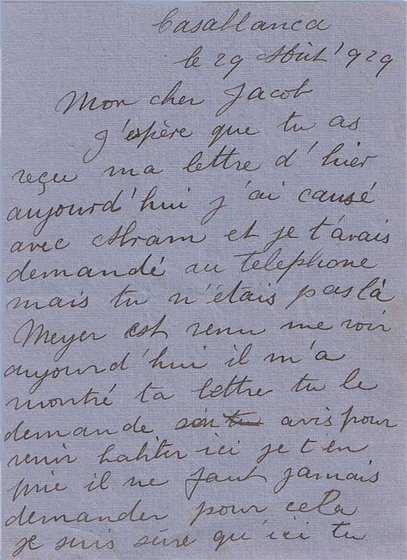 Casablanca
le 29 Août 1929
Mon cher Jacob
J'espère que tu as
reçu ma lettre d'hier
aujourd'hui j'ai causé
avec Abram et je t'avais
demandé au telephone
mais tu n'étais pas là
Meyer est venu me voir
aujourd'hui il m'a
montré ta lettre tu le
demande son avis pour
venir habiter ici je t'en
prie il ne faut jamais
demander pour cela
je suis sûre qu'ici tu